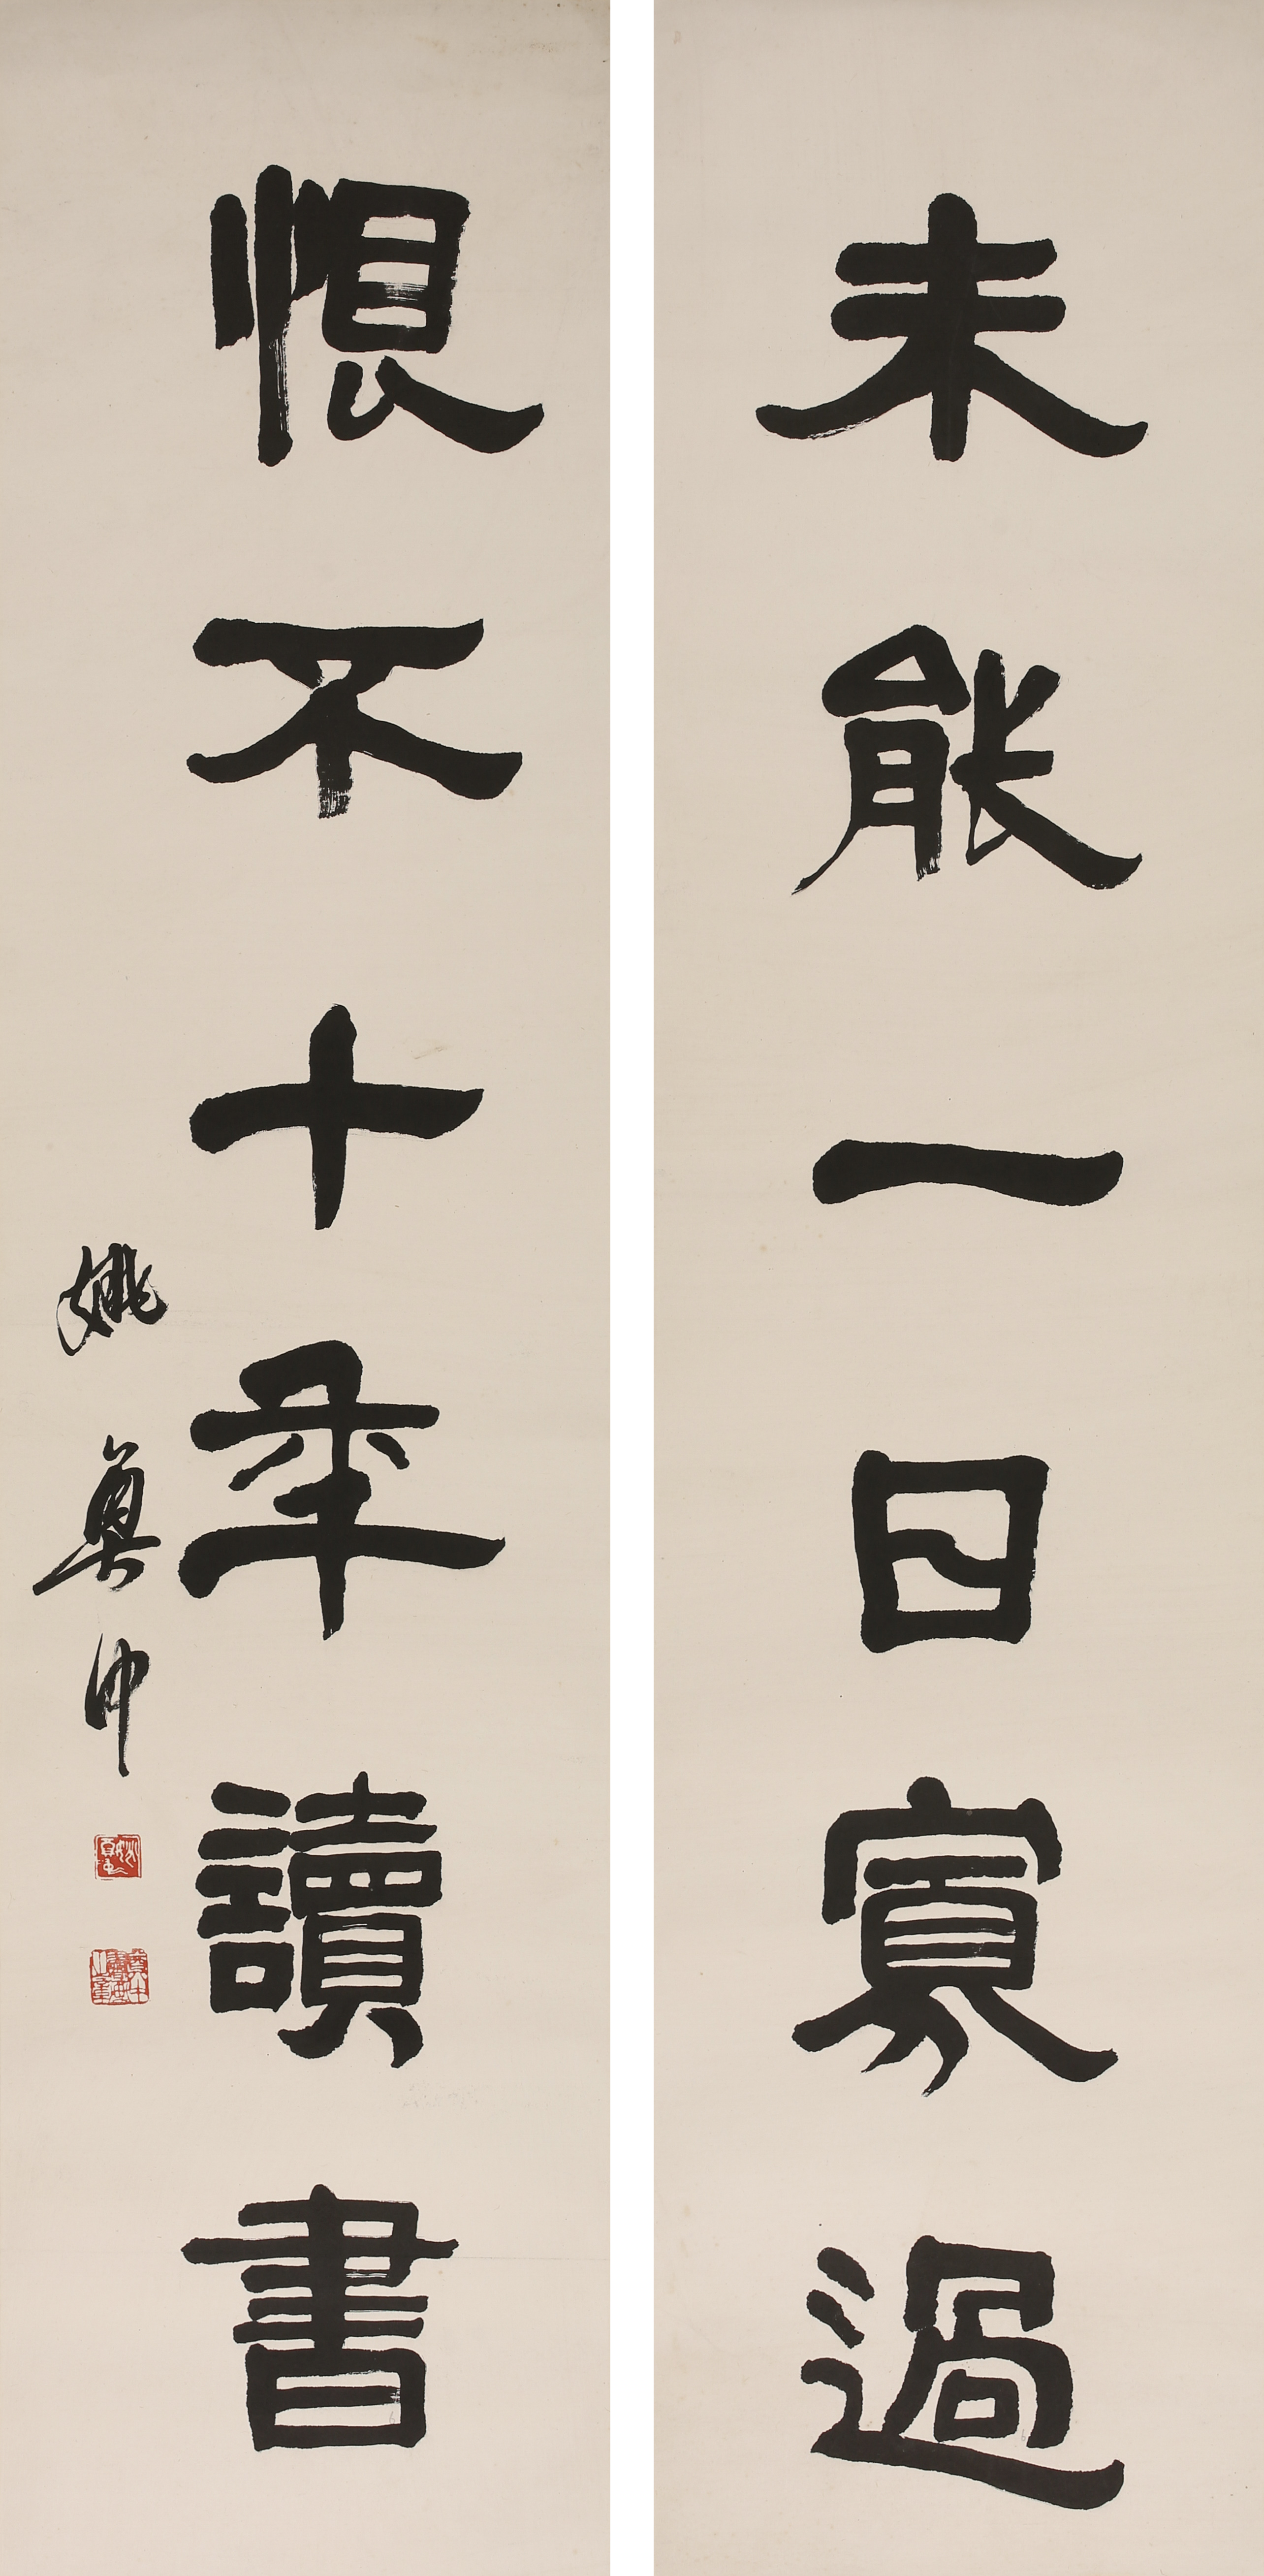 未能一日寡過
恨不十年讀書
姚